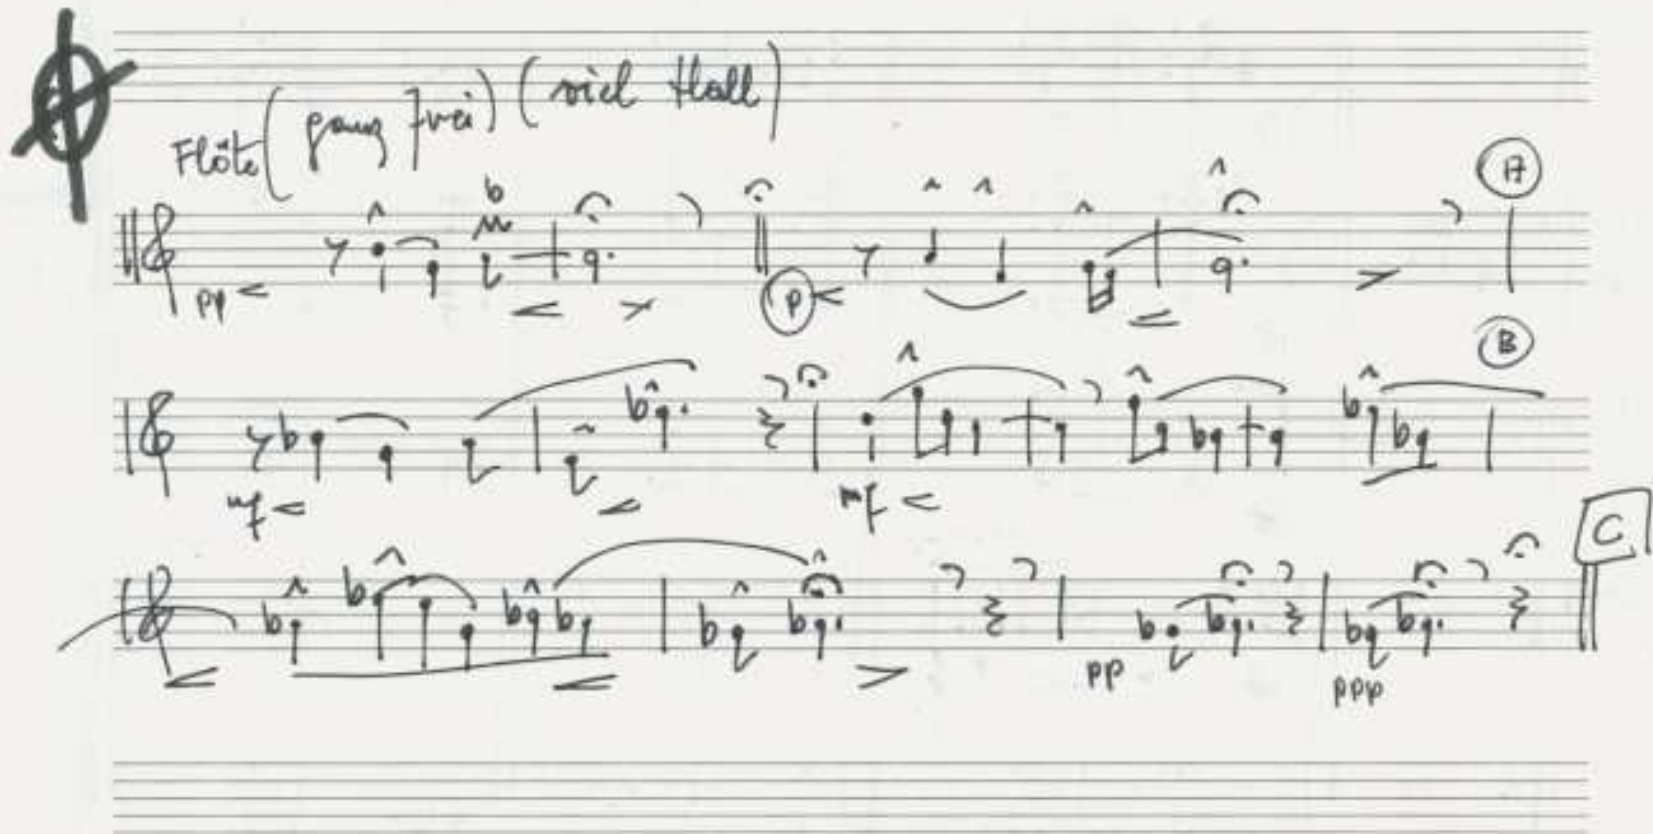 Flöte (ganz frei) (viel Hall)
A
pp p
B
mf mf
C
pp ppp